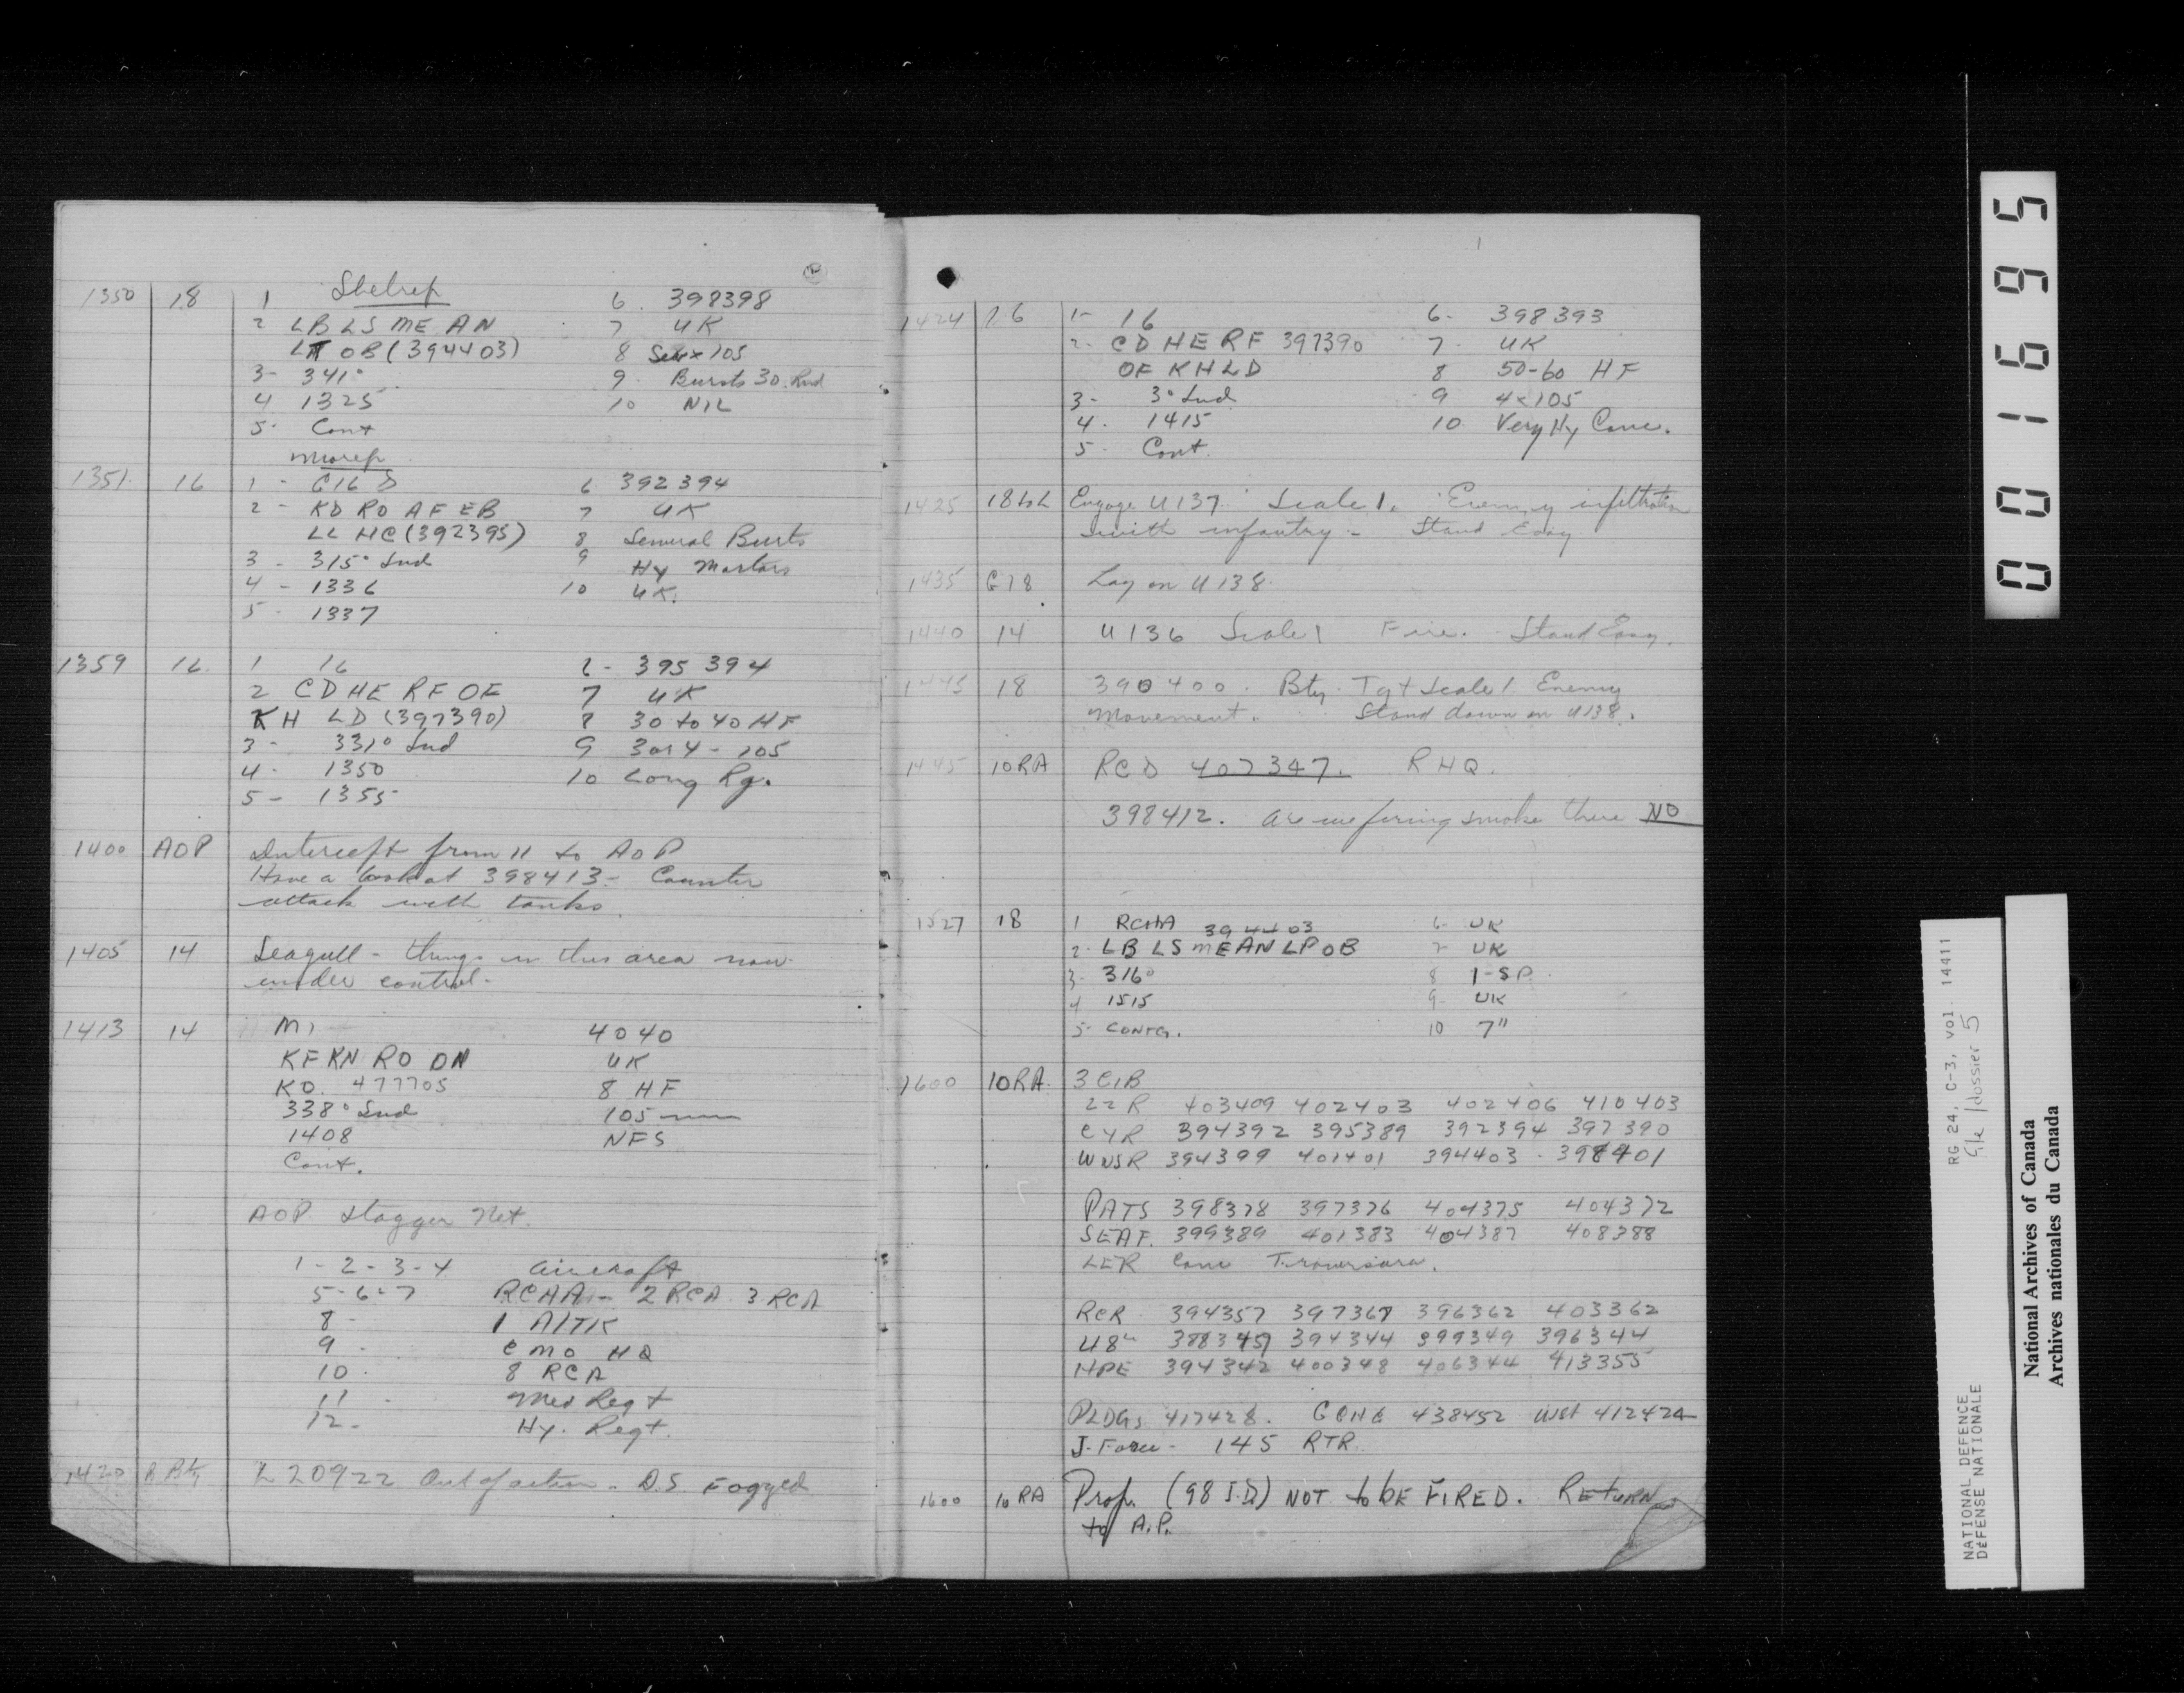 Shelrep
1350 18 1 6. 398398
2 LB LS ME AN 7 UK
OB (394403) 8 105
3- 341° 9 Bursts 30. Rnd
4 1325 10 NIL
5. Cont
Morep
1351. 16 1 - 6 392394
2 - KD RO AF EB 7 UK
LL HC (392395) 8 Several Bursts
3 - 315° Snd 9 Hy Mortars
4 - 1336 10 UK.
5 - 1337
1359 16. 1 16 6- 395 394
2 CD HE RF OF 7 UK
KH LD (397390) 8 30 to 40 HF
3- 331° Snd 9 3 or 4 - 105
4- 1350 10 Long Rg.
5- 1355
1400 AOP Intercept from 11 to AOP
Have a look at 398413 - Counter
attack with tanks.
1405 14 Seagull - things in this area now
under control -
1413 14 4040
KF KN RO ON UK
KO. 477705 8 HF
338° Snd 105 mm
1408 NFS
Cont.
AOP. Stagger Net.
1 - 2 - 3 - 4 Aircraft
5 - 6 - 7 RCHA - 2 RCA 3 RCA
8 - 1 A/TK
9 - CMO HQ
10. 8 RCA
11 - Med Regt
12 - Hy. Regt.
1420 B Bty L 20922 Out of action - D.S. Fogged
1424 16 1- 16 6- 398393
2- CD HE RF 397390 7- UK
OF KH LD 8 50-60 HF
3- 3° Snd 9 4x105
4. 1415 10. Very Hy Conc.
5- Cont.
1425 18 Engage U137. Scale 1. Enemy infiltration
with infantry - Stand Easy
1435 G18 Lay on U138.
1440 14 U136 Scale 1 Fire. - Stand Easy.
1445 18 390400. Bty. Tgt Scale 1. Enemy
Movement. Stand down on U138.
1445 10RA RCD 407347. RHQ.
398412. Are we firing smoke there NO
1527 18 1 RCHA 394403 6- UK
2. LB LS MEAN LP OB 7- UK
3- 316° 8 1-SP.
4 1515 9- UK
5- CONTG. 10 7"
1600 10RA. 3 CIB
22 R 403409 402403 402406 410403
CYR 394392 395389 392394 397390
WNSR 394399 401401 394403 - 398401
PATS 398378 397376 404375 404372
SEAF. 399389 401383 404387 408388
LER Conc Traversara.
RCR 394357 397367 396362 403362
48 394344 399349 396344
HPE 394342 400348 406344 413355
PLDGs 417428. GGHG 438452 West 412424
J. Force - 145 RTR.
1600 10 RA Prop. (98 I.D.) NOT to bE FIRED. RETURN
to A.P.
0001695
RG 24, C-3, vol. 14411
file/dossier 5
NATIONAL DEFENCE
DÉFENSE NATIONALE
National Archives of Canada
Archives nationales du Canada